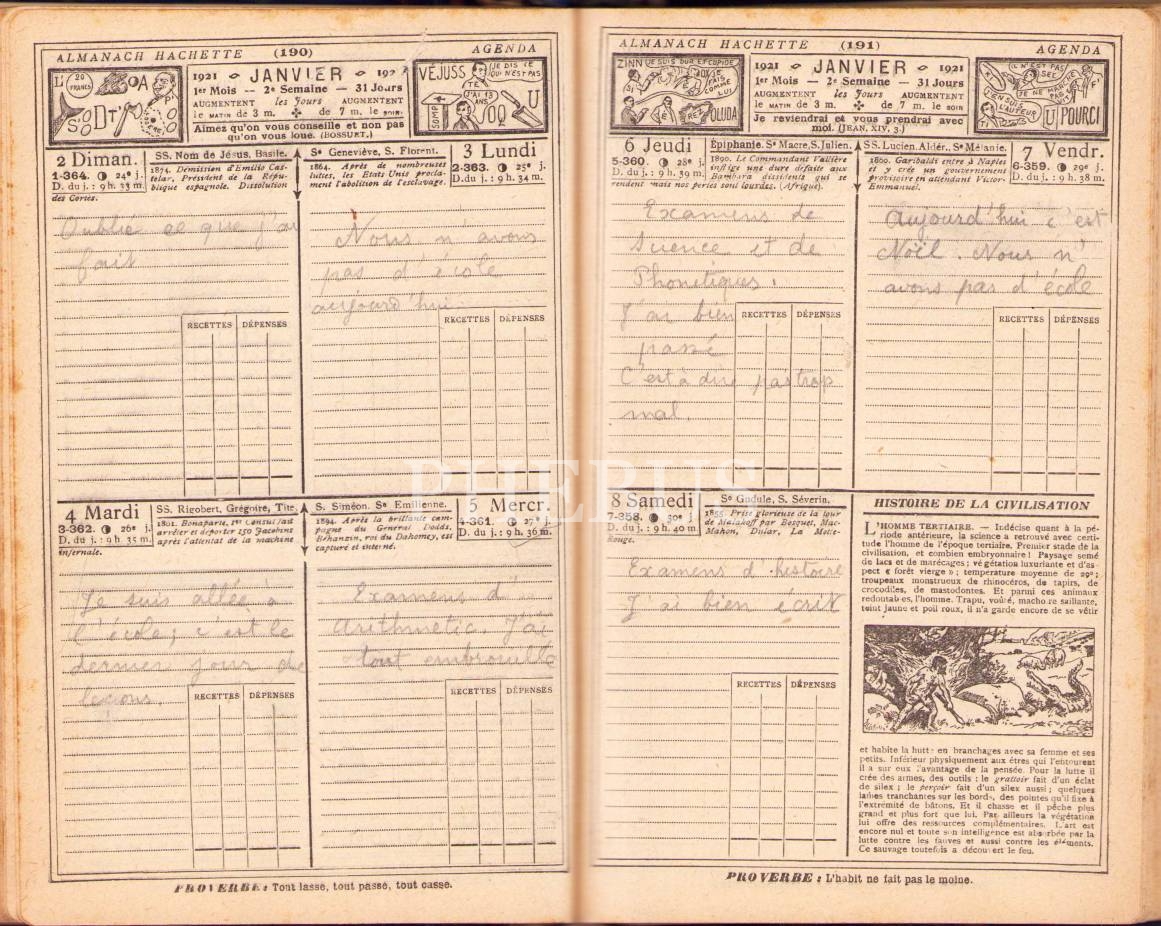 ALMANACH HACHETTE (190) AGENDA
L' 20 FRANCS OA
S' DT' P'
1921 JANVIER 192
1er Mois -- 2e Semaine -- 31 Jours
AUGMENTENT les Jours AUGMENTENT
le MATIN de 3 m. de 7 m. le SOIR.
Aimez qu'on vous conseille et non pas
qu'on vous loue. (BOSSUET.)
VÉJUSS JE DIS CE QUI N'EST PAS
TÉ J'AI 13 ANS
SOMP OQ U
2 Diman.
1-364. 24e j.
D. du j. : 9 h. 33 m.
SS. Nom de Jésus, Basile.
1874. Démission d'Emilio Cas-
telar, Président de la Répu-
blique espagnole. Dissolution
des Cortes.
Oublié ce que j'ai
fait
RECETTES DÉPENSES
Se Geneviève, S. Florent.
1864. Après de nombreuses
luttes, les Etats Unis procla-
ment l'abolition de l'esclavage.
3 Lundi
2-363. 25e j.
D. du j. : 9 h. 34 m.
Nous n'avons
pas d'école
aujourd'hui
RECETTES DÉPENSES
4 Mardi
3-362. 26e j.
D. du j. : 9 h. 35 m.
SS. Rigobert, Grégoire, Tite.
1801. Bonaparte, 1er Consul fait
arrêter et déporter 150 Jacobins
après l'attentat de la machine
infernale.
Je suis allée à
l'école; c'est le
dernier jour de
leçons.
RECETTES DÉPENSES
S. Siméon. Se Emilienne.
1894. Après la brillante cam-
pagne du Général Dodds,
Béhanzin, roi du Dahomey, est
capturé et interné.
5 Mercr.
4-361. 27e j.
D. du j. : 9 h. 36 m.
Examens d'
Arithmetic. J'ai
tout embrouillé
RECETTES DÉPENSES
PROVERBE : Tout lasse, tout passe, tout casse.
ALMANACH HACHETTE (191) AGENDA
ZINN JE SUIS DUR ET CUPIDE
FAIS COMME LUI
OLUDA
1921 JANVIER 1921
1er Mois -- 2e Semaine -- 31 Jours
AUGMENTENT les Jours AUGMENTENT
le MATIN de 3 m. de 7 m. le SOIR
Je reviendrai et vous prendrai avec
moi. (JEAN, XIV, 3.)
IL N'EST PAS
J'EN SUIS L'AUTEUR
U POURCI
6 Jeudi
5-360. 28e j.
D. du j. : 9 h. 39 m.
Épiphanie. Se Macre, S. Julien.
1890. Le Commandant Vallière
inflige une dure défaite aux
Bambara dissidents qui se
rendent mais nos pertes sont lourdes. (Afrique).
Examens de
Science et de
Phonétiques.
J'ai bien
passé
C'est à dire pas trop
mal.
RECETTES DÉPENSES
SS. Lucien. Aldér., Se Mélanie.
1860. Garibaldi entre à Naples
et y crée un gouvernement
provisoire en attendant Victor-
Emmanuel.
7 Vendr.
6-359. 29e j.
D. du j. : 9 h. 38 m.
Aujourd'hui c'est
Noël. Nous n'
avons pas d'école
RECETTES DÉPENSES
8 Samedi
7-358. 30e j
D. du j. : 9 h. 40 m
Se Gudule, S. Séverin.
1855. Prise glorieuse de la tour
de Malakoff par Bosquet, Mac-
Mahon, Dulac, La Motte-
Rouge.
Examens d'histoire
J'ai bien écrit
RECETTES DÉPENSES
HISTOIRE DE LA CIVILISATION
L'HOMME TERTIAIRE. — Indécise quant à la pé-
riode antérieure, la science a retrouvé avec certi-
tude l'homme de l'époque tertiaire. Premier stade de la
civilisation, et combien embryonnaire ! Paysage semé
de lacs et de marécages ; végétation luxuriante et d'as-
pect « forêt vierge » ; temperature moyenne de 29° ;
troupeaux monstrueux de rhinocéros, de tapirs, de
crocodiles, de mastodontes. Et parmi ces animaux
redoutables, l'homme. Trapu, voûté, machoire saillante,
teint jaune et poil roux, il n'a garde encore de se vêtir
et habite la hutte en branchages avec sa femme et ses
petits. Inférieur physiquement aux êtres qui l'entourent
il a sur eux l'avantage de la pensée. Pour la lutte il
crée des armes, des outils : le grattoir fait d'un éclat
de silex ; le perçoir fait d'un silex aussi ; quelques
lames tranchantes sur les bords, des pointes qu'il fixe à
l'extrémité de bâtons. Et il chasse et il pêche plus
grand et plus fort que lui. Par ailleurs la végétation
lui offre des ressources complémentaires. L'art est
encore nul et toute son intelligence est absorbée par la
lutte contre les fauves et aussi contre les éléments.
Ce sauvage toutefois a découvert le feu.
PROVERBE : L'habit ne fait pas le moine.
PHEBUS